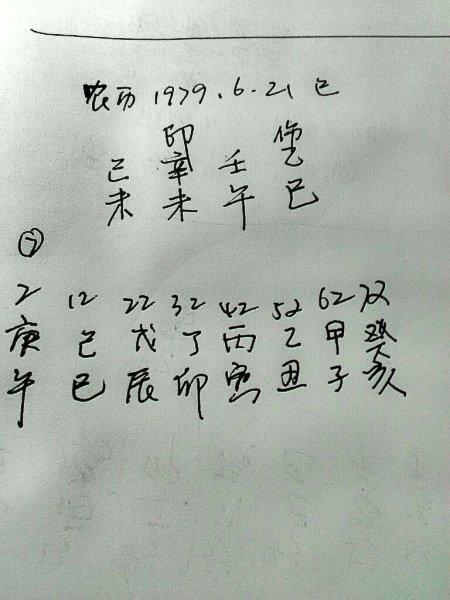 农历 1979.6.21 巳
印 伤
己 辛 壬 乙
未 未 午 巳
2 12 22 32 42 52 62 72
庚 己 戊 丁 丙 乙 甲 癸
午 巳 辰 卯 寅 丑 子 亥